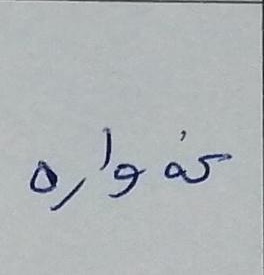 كەوارە